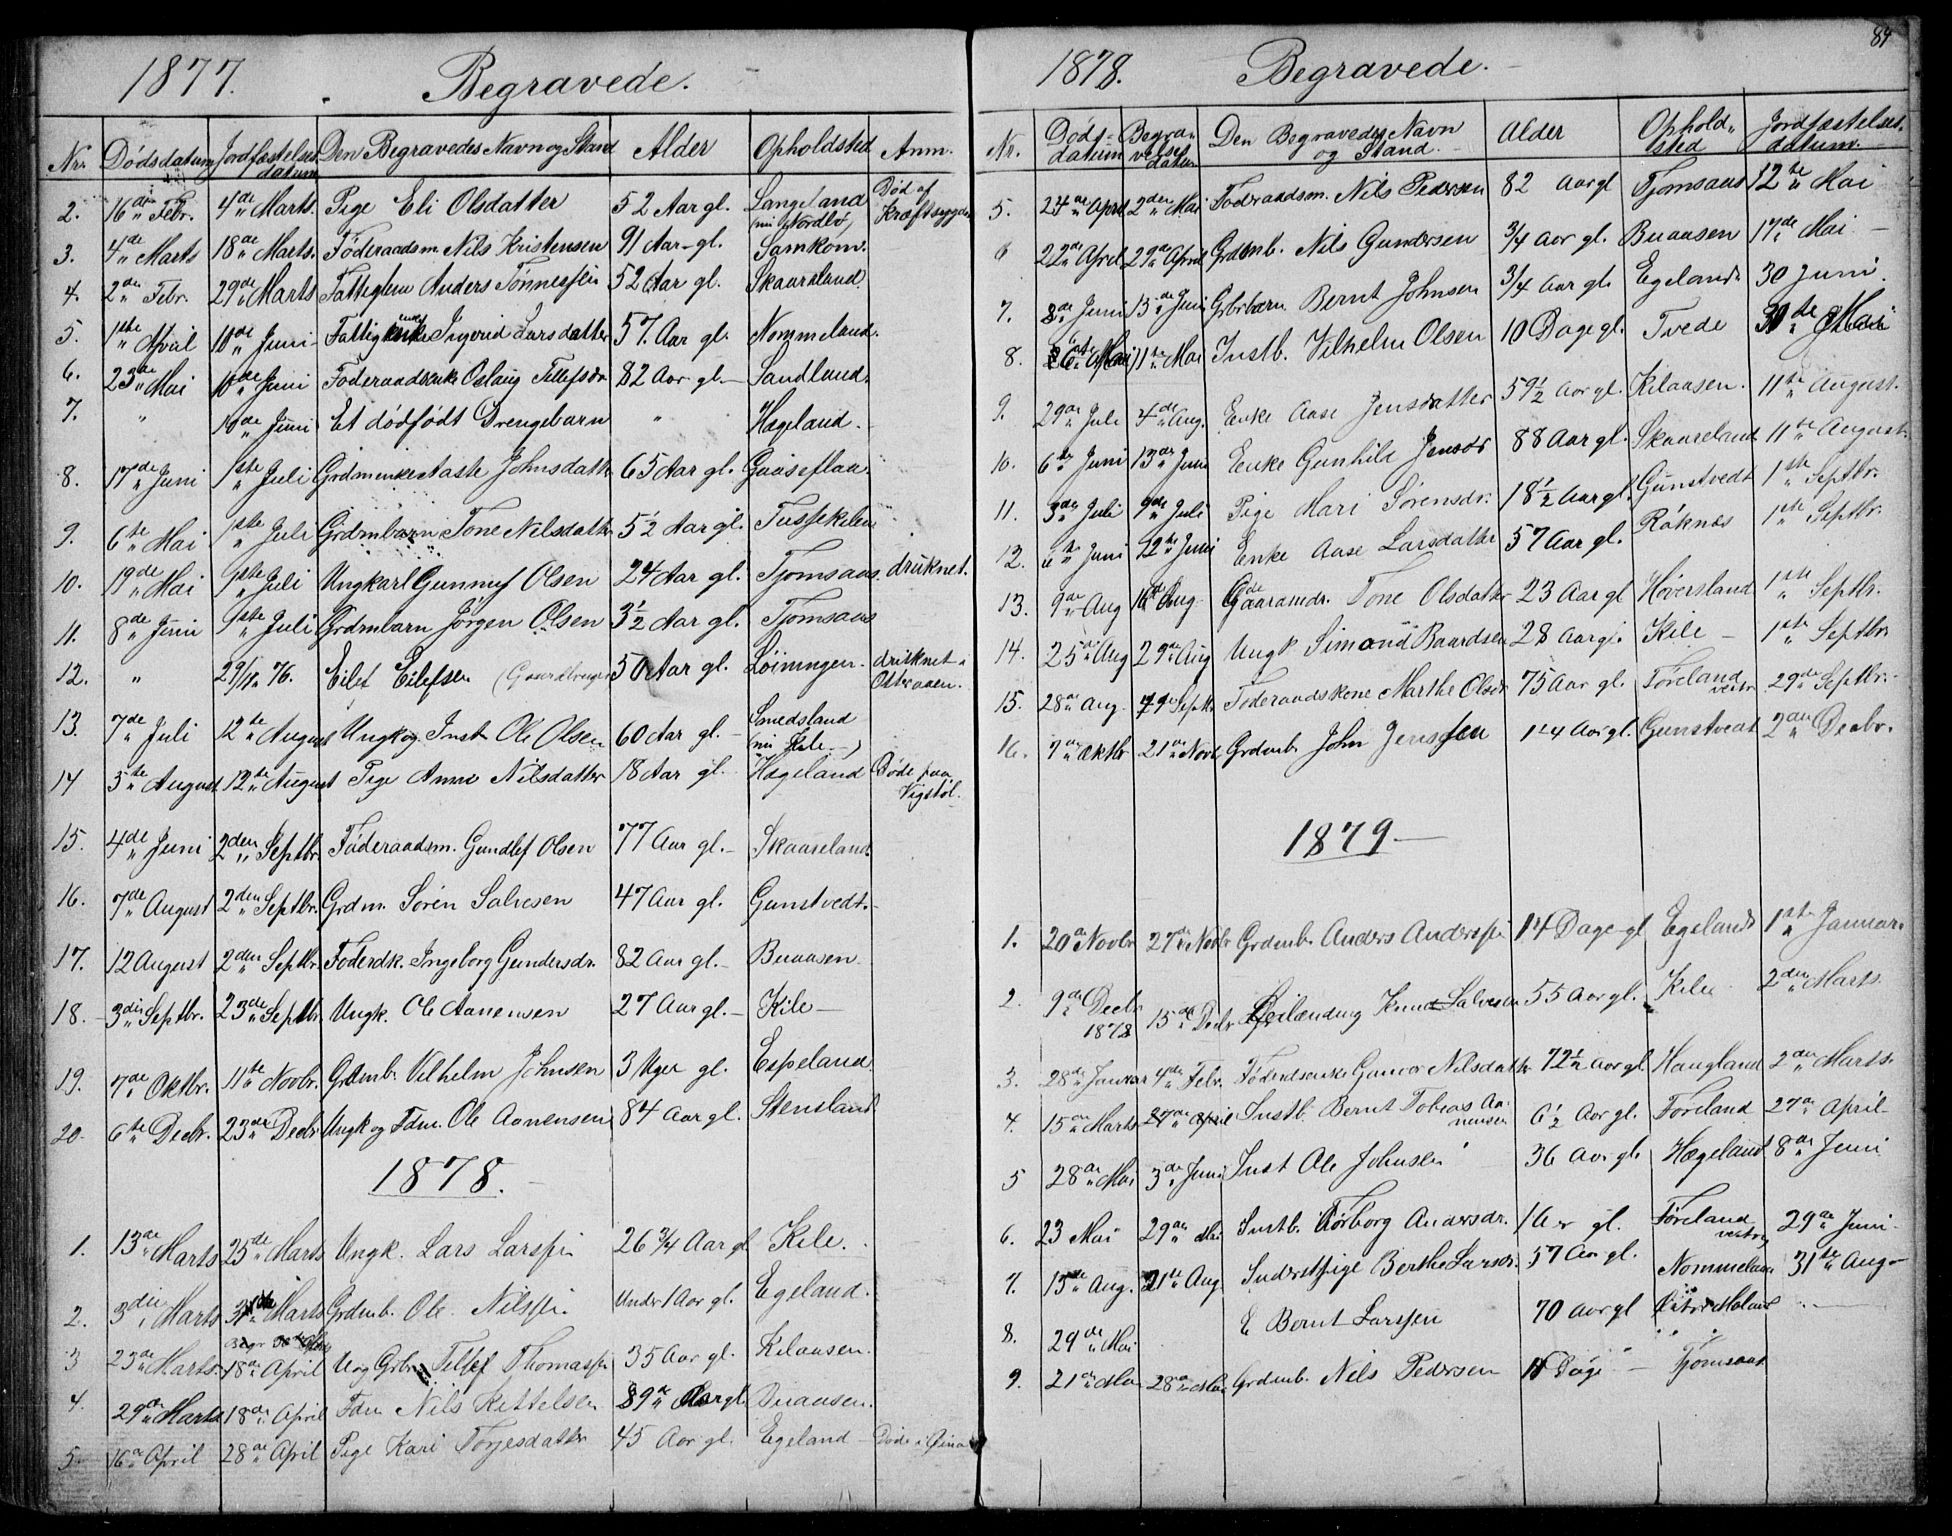 1877. Begravede.
Nr. Dødsdatum Jordfæstelses datum Den Begravedes Navn og Stand Alder Opholdsted Anm.
2. 16de Febr. 4de Marts. Pige Eli Olsdatter 52 Aar gl. Langeland (nu Nordbø) Død af Kræftsygdom
3. 4de Marts 18de Marts. Føderaadsm. Nils Kristensen 91 Aar gl. Samkom.
4. 2den Febr. 29de Marts Fattiglem Anders Tønnessen 52 Aar gl. Skaareland.
5. 1ste April 10de Juni Fattig Ingerid Larsdatter 57 Aar gl. Nommeland.
6. 23de Mai 10de Juni Føderaadsenke Oslaug Tellefsdr 82 Aar gl. Sandland.
7. " 10de Juni Et dødfødt Drengebarn " Hægeland.
8. 17de Juni 1ste Juli Grdmenke Aaste Johnsdatter 65 Aar gl. Gaaseflaa.
9. 6te Mai 1ste Juli Grdmbarn Tone Nilsdatter 5½ Aar gl. Tussekilen
10. 19de Mai 1ste Juli Ungkarl Gunnuf Olsen 24 Aar gl. Tjomsaas. druknet.
11. 8de Juni 1ste Juli Grdmbarn Jørgen Olsen 3½ Aar gl. Tjomsaas
12. " 29/11 76. Eilef Eilefsen (Gaardbruger 50 Aar gl. Løiningen. druknet i Otteraaen.
13. 7de Juli 12te August Ungk og Inst Ole Olsen 60 Aar gl. Smedsland (nu Kile)
14 5te August 12te August Pige Anne Nilsdatter 18 Aar gl. Hægeland Døde paa Vigstøl.
15. 4de Juni 2den Septbr. Føderaadsm. Gundlef Olsen 77 Aar gl. Skaareland.
16. 7de August 2den Septbr. Grdm. Søren Salvesen 47 Aar gl. Gunstvedt.
17. 12 August 2den Septbr. Føderdk. Ingeborg Gundersdr. 82 Aar gl. Buaasen
18. 3die Septbr. 23de Septbr Ungk. Ole Aanensen 27 Aar gl. Kile
19. 7de Oktbr. 11te Novbr. Grdmb. Vilhelm Johnsen 3 Uger gl. Espeland.
20. 6te Decbr. 23de Decbr Ungk og Fdm. Ole Aanensen 84 Aar gl. Stensland
1878.
1. 13de Marts 25de Marts Ungk. Lars Larssen 26¾ Aar gl Kile.
2. 3die Marts 31te Marts Grdmb. Ole Nilssen. Under 1 Aar gl. Egeland.
3 23de Marts 18de April U og Grbr Tellef Thomassen 35 Aar gl. Kilaasen.
4. 29de Marts 18de April Fdm Nils Kittelsen 89 Aar gl. Buaasen.
5. 16de April 28de April Pige Kari Torjesdatter 45 Aar gl. Egeland
84
1878. Begravede.
Nr. Dødsdatum Begravelsesdatum Den Begravedes Navn og Stand. Alder Opholdsted Jordfæstelsesdatum.
5. 24de April 2den Mai Føderaadsm. Nils Pedersen 82 Aar gl Tjomsaas 12te Mai
6 22de April 29de April Grdmb. Nils Gundersen ¾ Aar gl. Buaasen 17de Mai
7. 8de Juni 15de Juni Grbrbarn Bernt Johnsen ¾ Aar gl. Egeland. 30 Juni.
8. 6te Mai 11te Mai Instb. Vilhelm Olsen 10 Dage gl. Tvede 30te Mai
9. 29de Juli 4de Aug. Enke Aase Jensdatter 59½ Aar gl. Kilaasen. 11te August.
10. 6te Juni 13de Juni Enke Gunhild Jensdr 88 Aar gl. Skaareland 11te August.
11. 3de Juli 9de Juli Pige Mari Sørensdr. 18½ Aar gl. Gunstvedt 1ste Septbr.
12. 6te Juni 12te Juni Enke Aase Larsdatter 57 Aar gl. Røknæs 1ste Septbr.
13. 9de Aug 16de Aug. Tone Olsdatter 23 Aar gl Høversland 1ste Septbr.
14. 25de Aug 29de Aug Ungk Simond Baardsen 28 Aar gl. Kile 1ste Septbr
15. 28de Aug. Septbr Føderaadskone Marthe Olsdr 75 Aar gl. Føreland vestr 29de Septbr.
16. 7de Oktbr 21de Novbr Grdmb. John Jenssen 14 Aar gl. Gunstvedt 2den Decbr.
1879
1. 20de Novbr 27de Novbr Grdmb. Anders Anderssen 14 Dage gl Egeland 1ste Januar
2. 9de Decbr 1878 15de Decbr Knud Salvesen 55 Aar gl. Kile 2den Marts.
3. 28de Januar 4de Febr. Føderdsenke Gunvor Nilsdatter 72½ Aar gl Haugland 2den Marts.
4. 15de Marts 27de April Instb. Bernt Tobias Aanensen 6½ Aar gl. Føreland 27de April
5 28de Mai 3de Juni Inst Ole Johnsen 36 Aar gl. Hægeland 8de Juni
6. 23 Mai 29de Mai Instb. Torborg Andersdr. 1 Aar gl. Føreland vestre 29de Juni
7. 15de Aug. 21de Aug. Inderstpige Berthe Larsdr. 57 Aar gl. Nommeland 31te Aug
8. 29de Mai E Bernt Larssen 70 Aar gl
9. 21de Mai 28de Mai Grdmb. Nils Pedersen Dage Tjomsaas